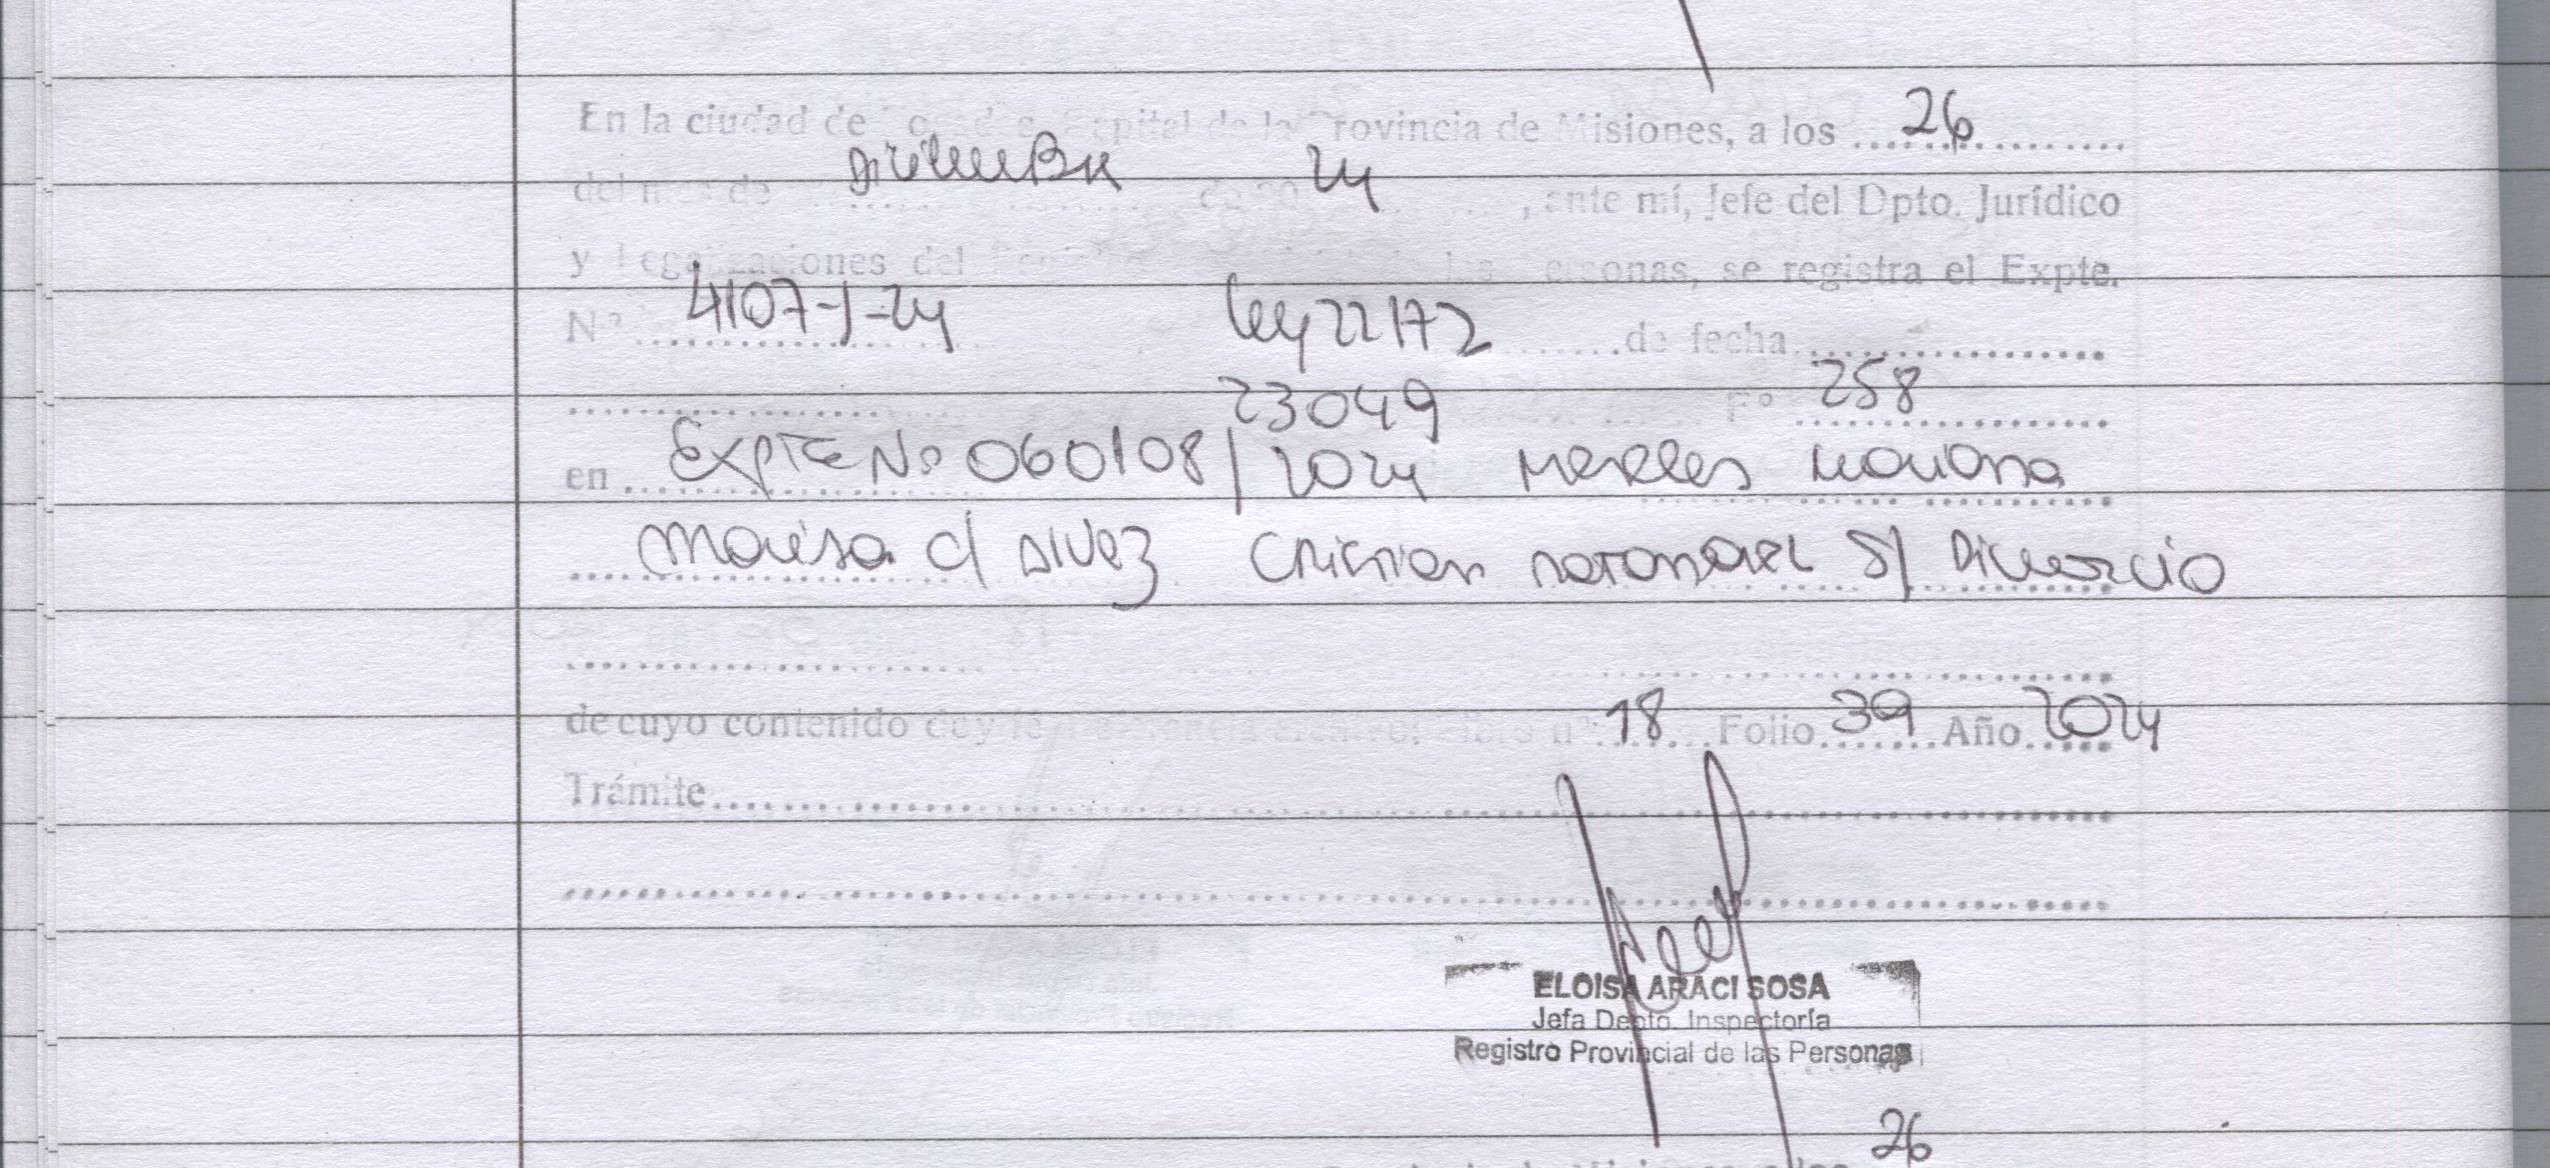 En la ciudad de Posadas, Capital de la Provincia de Misiones, a los 26
del mes de Diciembre de 20 24, ante mí, Jefe del Dpto. Jurídico
y Legalizaciones del las Personas, se registra el Expte.
Nº 4107-J-24 ley 22172 de fecha
23049 Fº 258
en Expte Nº 060108/2024 Mereles Mariana
Marisa c/ Alvez Cristian Natanael S/ Divorcio
de cuyo contenido doy fe nº 18 Folio 39 Año 2024
Trámite
ELOISA ARACI SOSA
Jefa Depto. Inspectoría
Registro Provincial de las Personas
26